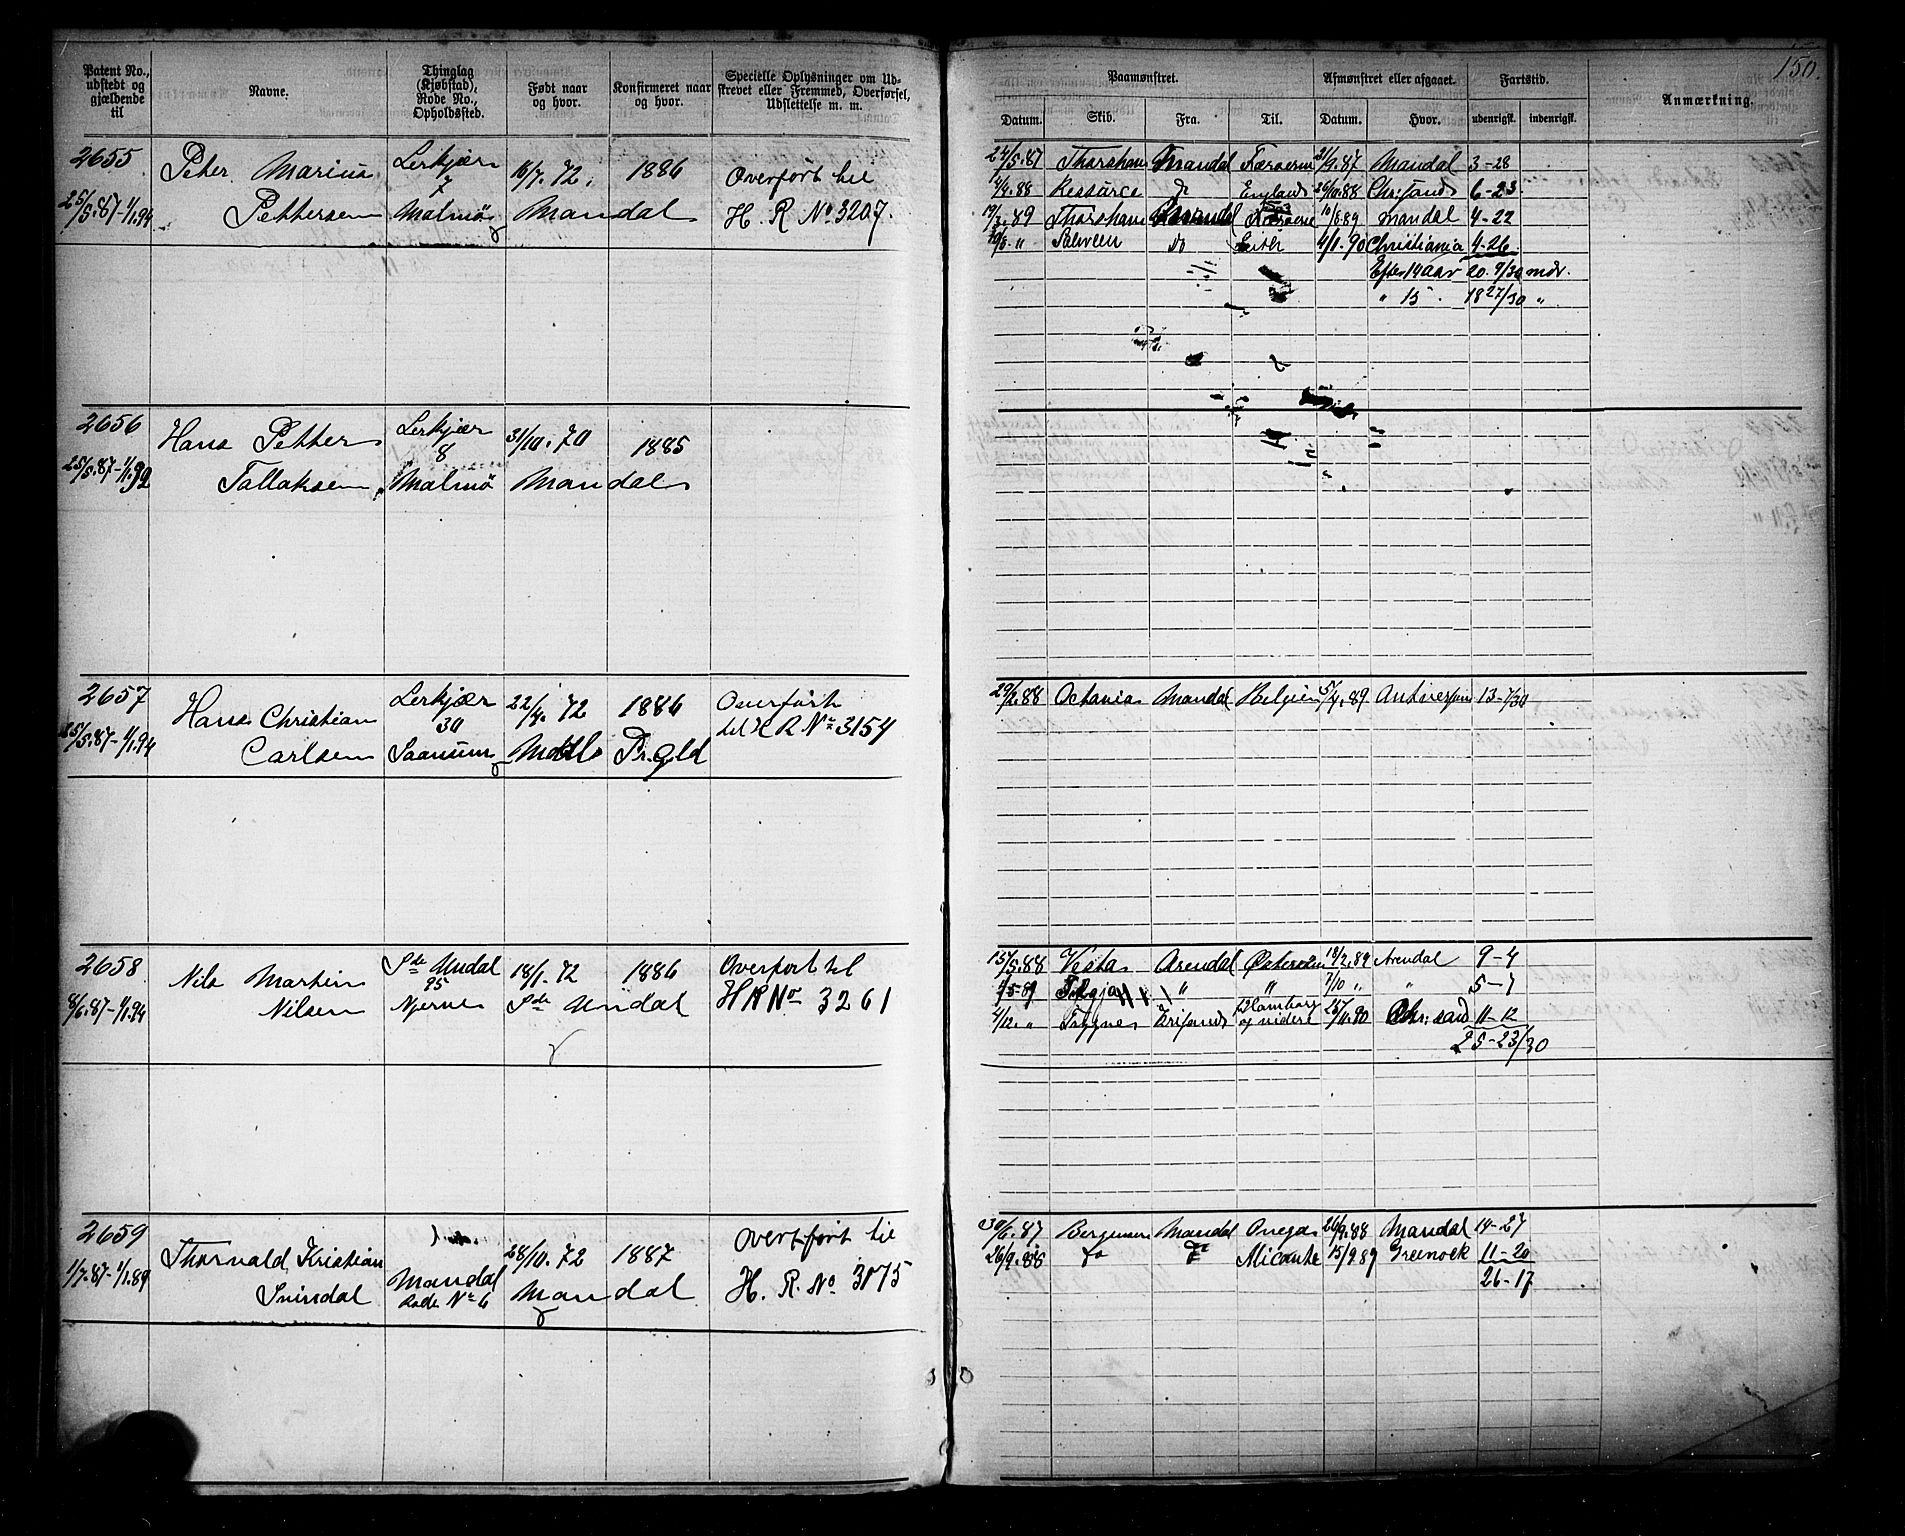 150.
Patent No., udstedt og gjældende til
Navne.
Thinglag (Kjøbstad), Rode No., Opholdssted.
Født naar og hvor.
Konfirmeret naar og hvor.
Specielle Oplysninger om Udskrevet eller Fremmed, Overførsel, Udslettelse m. m.
Paamønstret.
Afmønstret eller afgaaet.
Fartstid.
Anmærkning.
Datum. Skib. Fra. Til. Datum. Hvor. udenrigsk. indenrigsk.
2655
Peter Marius
Lerkjær
7
16/7. 72.
1886
Overført til
25/5.87-1/1.94
Pettersen
Malmø
Mandal
H. R No 3207.
24/5.87 Thorshavn Mandal Færøerne 21/9.87 Mandal 3-28
14/4.88 Ressurce do England 26/10.88 Chr:sand 6-23
19/3.89 Thorshavn Mandal Færøerne 10/8.89 Mandal 4-22
" Salveen do 4/1.90 Christiania 4-26
Efter 14 Aar 20. 9/30 mdr.
" 15 . 18 27/30 "
2656
Hans Petter
Lerkjær
8
31/10. 70
1885
25/5.87-1/1.92
Tallaksen
Malmø
Mandal
2657
Hans Christian
Lerkjær
30
22/4. 72
1886
Overført
til H R No 3154
25/5.87-1/1.94
Carlsen
Saanum
Prgld
29/2.88 Octania Mandal Belgien 5/4.89 Antwerpen 13-7/30
2658
Nils Martin
Sdr Undal
95
18/1. 72
1886
Overført til
8/6.87-1/1.94
Nilsen
Njerve
Sdr Undal
H R No 3261
15/5.88 Vesta Arendal Østersøen 18/2.89 Arendal 9-4
" " 7/10 " " 5-1
4/12. " Trygve Krisands Hamborg og videre 15/11.90 Chr:sand 11-12
25-23/30
2659
Thorvald Kristian
28/10. 72
1887
overført til
1/7.87-1/1.89
Svindal
Mandal
Rode No 6
Mandal
H. R. No 3175
30/6.87 Mandal Onega 26/9.88 Mandal 14-27
26/9.88 do 15/9.89 Greenock 11-20
26-17